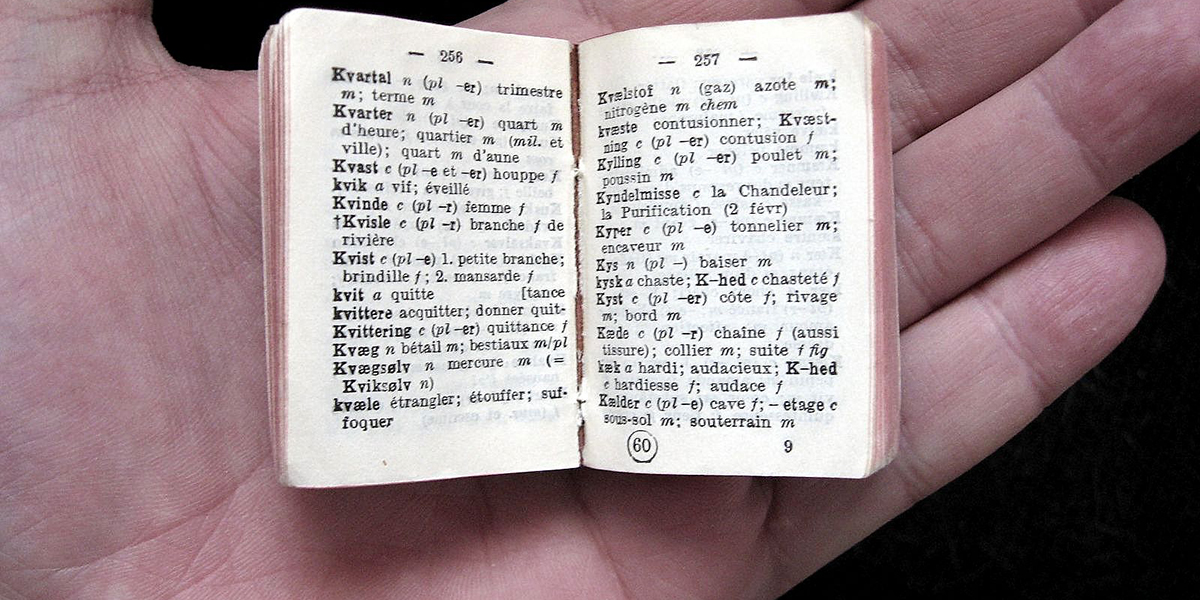 — 256 —
Kvartal n (pl –er) trimestre
m; terme m
Kvarter n (pl –er) quart m
d'heure; quartier m (mil. et
ville); quart m d'aune
Kvast c (pl –e et –er) houppe f
kvik a vif; éveillé
Kvinde c (pl –r) femme f
†Kvisle c (pl –r) branche f de
rivière
Kvist c (pl –e) 1. petite branche;
brindille f; 2. mansarde f
kvit a quitte [tance
kvittere acquitter; donner quit-
Kvittering c (pl –er) quittance f
Kvæg n bétail m; bestiaux m/pl
Kvægsølv n mercure m (=
Kviksølv n)
kvæle étrangler; étouffer; suf-
foquer
— 257 —
Kvælstof n (gaz) azote m;
nitrogène m chem
kvæste contusionner; Kvæst-
ning c (pl –er) contusion f
Kylling c (pl –er) poulet m;
poussin m
Kyndelmisse c la Chandeleur;
la Purification (2 févr)
Kyper c (pl –e) tonnelier m;
encaveur m
Kys n (pl –) baiser m
kysk a chaste; K–hed c chasteté f
Kyst c (pl –er) côte f; rivage
m; bord m
Kæde c (pl –r) chaîne f (aussi
tissure); collier m; suite f fig
kæk a hardi; audacieux; K–hed
c hardiesse f; audace f
Kælder c (pl –e) cave f; – etage c
sous-sol m; souterrain m
60 9